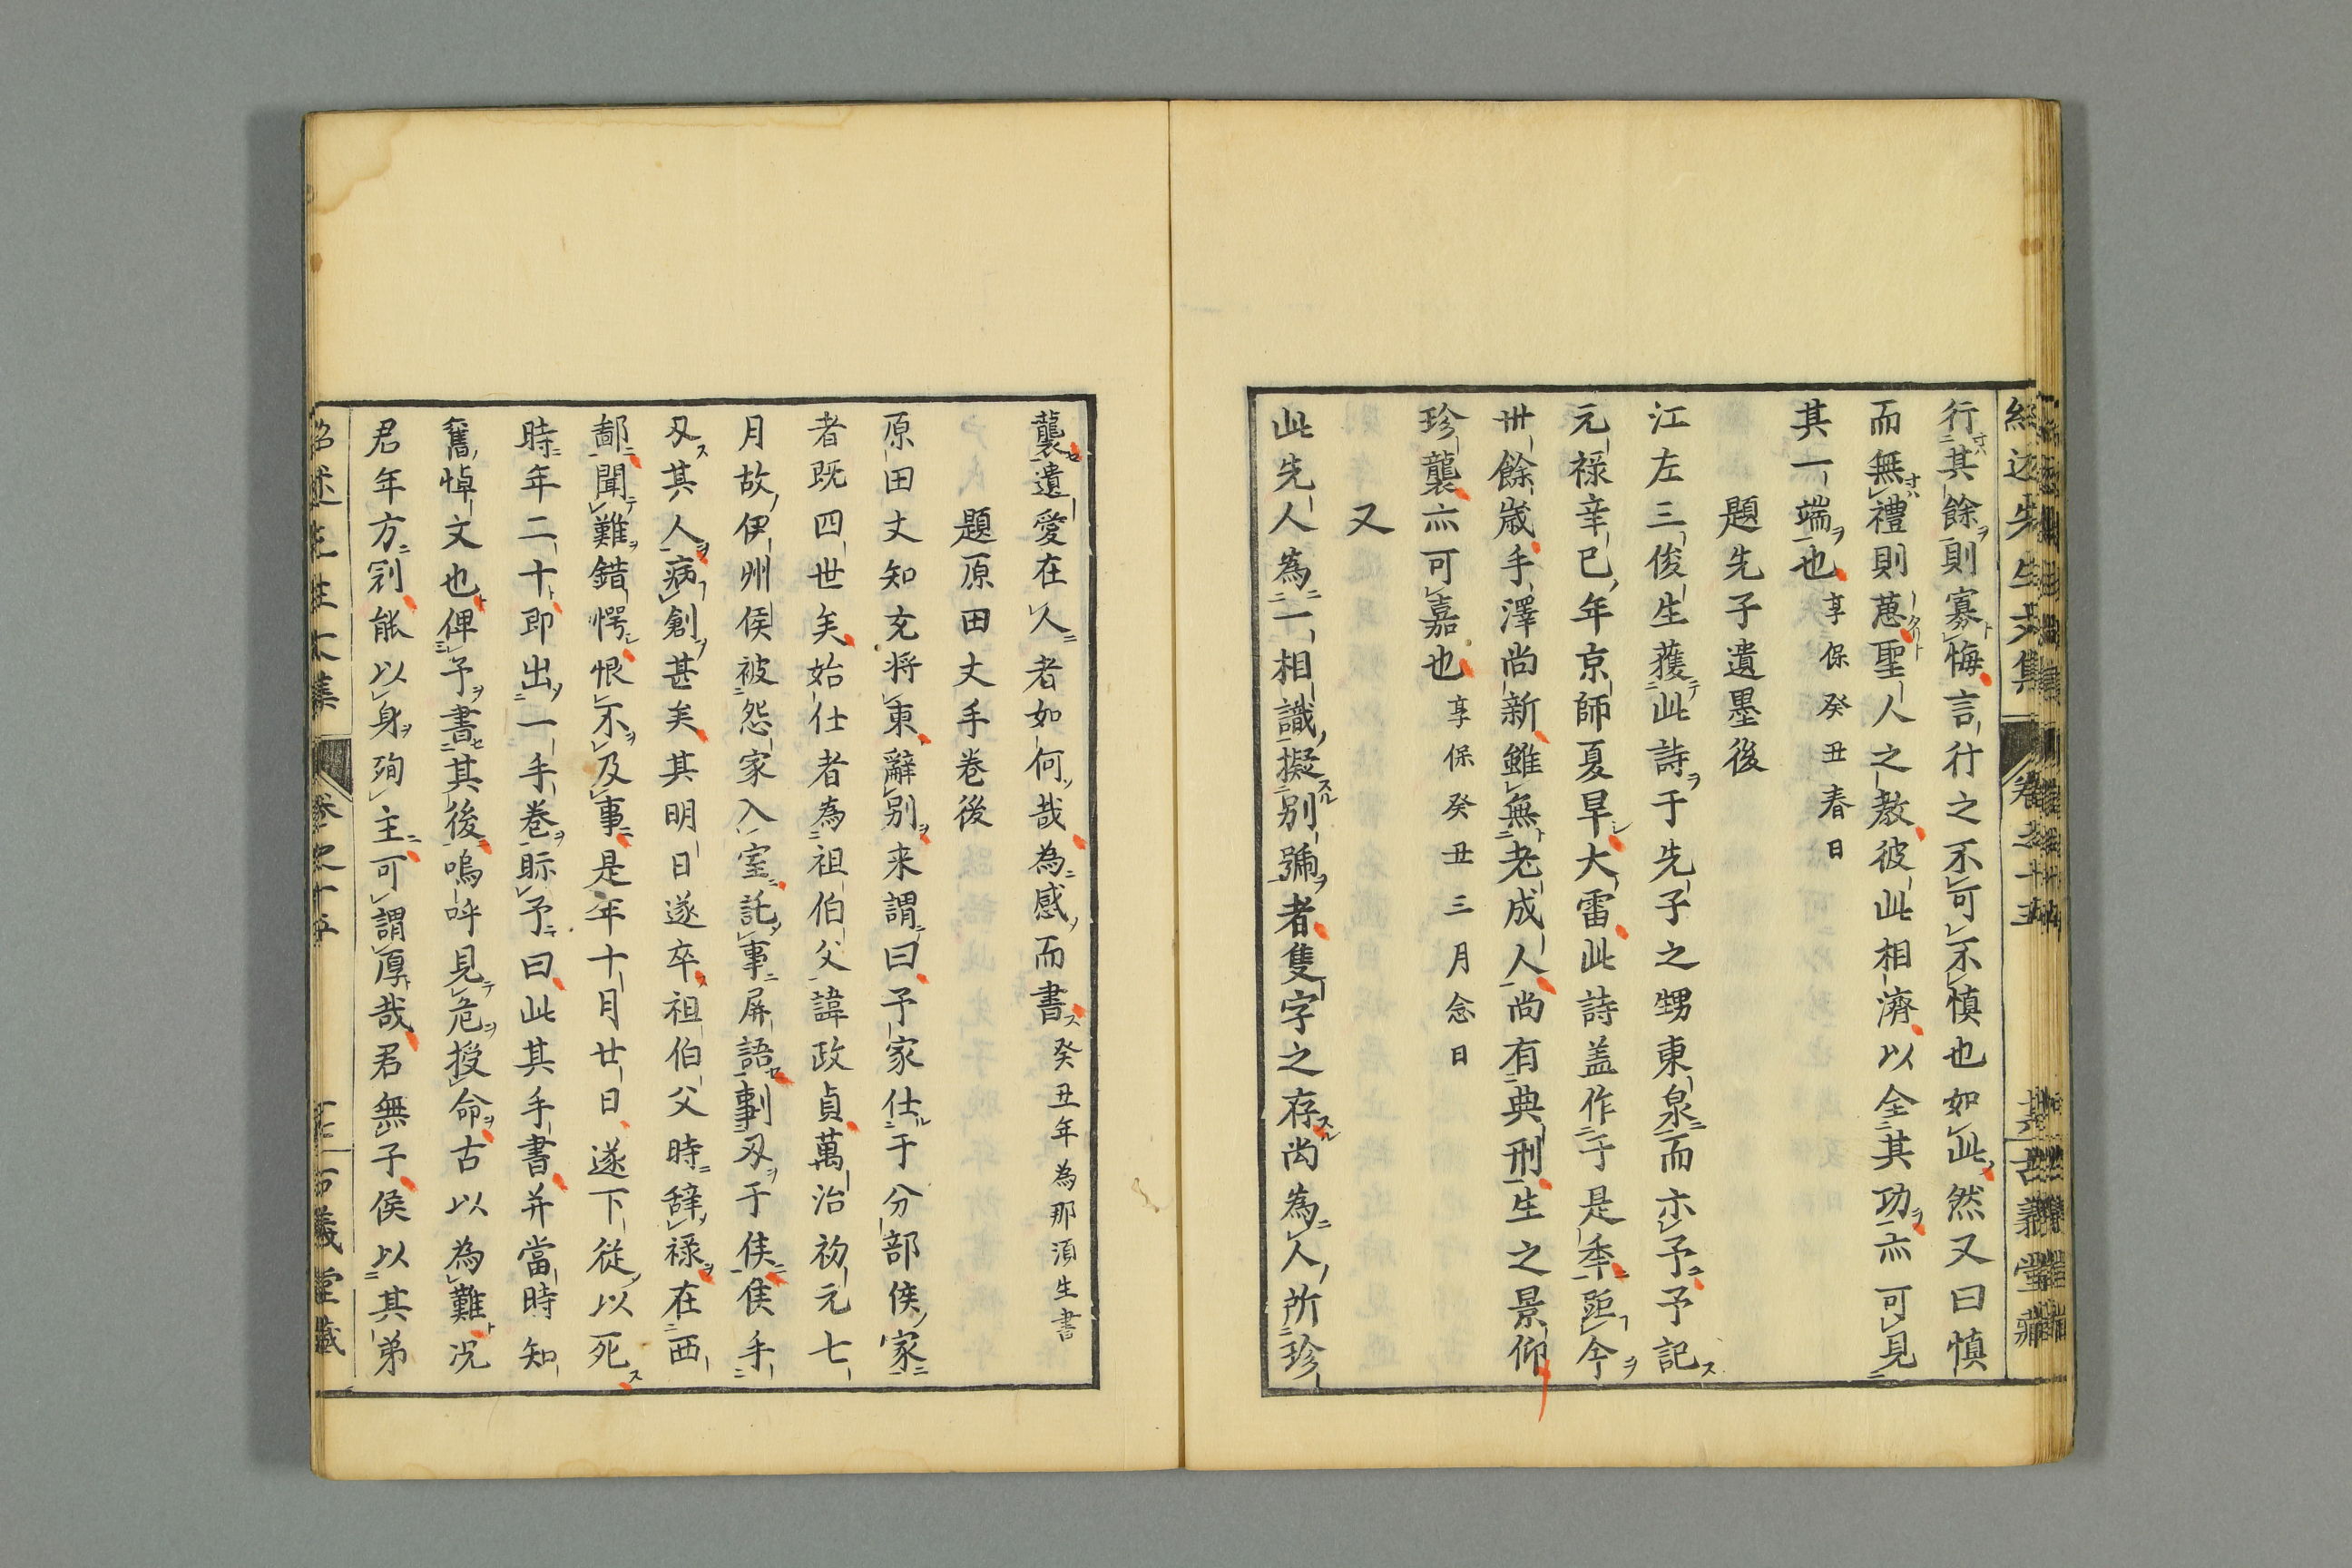 紹述先生文集 卷之十五 古義堂藏
行其餘則寡悔言行之不可不慎也如此然又曰慎
而無禮則葸聖人之教彼此相濟以全其功亦可見
其一端也 享保癸丑春日
題先子遺墨後
江左三俊生獲此詩于先子之甥東泉而示予予記
元禄辛巳年京師夏旱大雷此詩盖作于是季距今
卅餘歳手澤尚新雖無老成人尚有典刑生之景仰
珍襲亦可嘉也 享保癸丑三月念日
又
此先人為一相識擬別號者隻字之存尚為人所珍
襲遺愛在人者如何哉為感而書 癸丑年為那須生書
題原田丈手卷後
原田丈知充将東辭別来謂曰予家仕于分部侯家
者既四世矣始仕者為祖伯父諱政貞萬治初元七
月故伊州侯被怨家入室託事屏語剚刃于侯侯手
刃其人病創甚矣其明日遂卒祖伯父時辭禄在西
鄙聞難錯愕恨不及事是年十月廿日遂下従以死
時年二十即出一手巻眎予曰此其手書并當時知
舊悼文也俾予書其後嗚呼見危授命古以為難况
君年方冠能以身殉主可謂厚哉君無子侯以其弟
紹述先生文集 卷之十五 古義堂藏